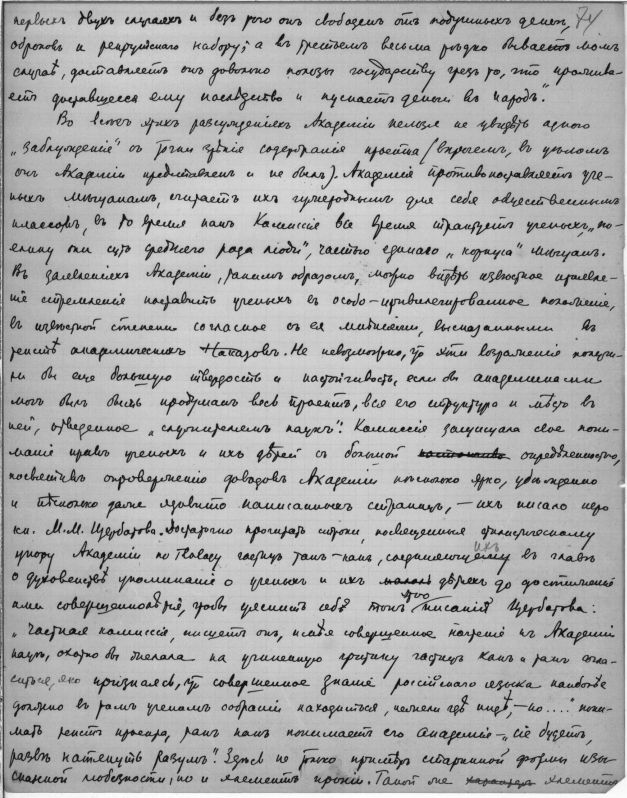 первыхъ двухъ случаяхъ и безъ того онъ свободенъ отъ подушныхъ денегъ, 74
оброковъ и рекрутскаго набору; а въ третьемъ весьма рѣдко бываетъ момъ
случаѣ, доставляетъ онъ довольно пользы государству чрезъ то, что прожива-
етъ доставшееся ему наслѣдство и пускаетъ деньги въ народъ".
Во всѣхъ этихъ разсужденіяхъ Академіи нельзя не увидѣть одного
„заблужденія" съ точки зрѣнія содержанія проекта (впрочемъ, въ цѣломъ
онъ Академіи представленъ и не былъ). Академія противопоставляетъ уче-
ныхъ мѣщанамъ, считаетъ ихъ чужероднымъ для себя общественнымъ
классомъ, въ то время какъ Комиссія все время трактуетъ ученыхъ, „по-
елику они суть средняго рода люди", частью единаго „корпуса" мѣщанъ.
Въ заявленіяхъ Академіи, такимъ образомъ, можно видѣть извѣстное
стремленіе поставить ученыхъ въ особо-привилегированное положеніе,
въ извѣстной степени согласное съ ея мнѣніями, высказанными въ
текстѣ академическихъ Наказовъ. Не невозможно, что эти возраженія получи-
ли бы еще большую твердость и настойчивость, если бы академиками
могъ быть продуманъ весь проектъ, вся его структура и мѣсто въ
ней, отведенное „служителемъ наукъ". Комиссія защищала свое пони-
маніе правъ ученыхъ и ихъ дѣтей съ большой опредѣленностью,
посвятивъ опроверженію доводовъ Академіи нѣсколько ярко, убѣжденно
и нѣсколько даже язвительно написанныхъ страницъ, — ихъ писало перо
кн. М. М. Щербатова. Достаточно прочитать строки, посвященныя стилистическому
укору Академіи по поводу частицъ тамъ-какъ, соединяющему въ главѣ ихъ
о духовенствѣ упоминаніе о ученыхъ и ихъ дѣтяхъ до достиженія
ими совершеннолѣтія, чтобы уяснить себѣ тонъ этого писанія Щербатова:
„Частная комиссія, пишетъ онъ, имѣя совершенное почтеніе къ Академіи
наукъ, охотно бы желала на учиненную критику частицъ какъ и тамъ согла-
ситься, яко признаясь, что совершенное знаніе россійскаго языка наиболѣе
должно въ томъ ученомъ собраніи находиться, нежели гдѣ индѣ, — но...." пони-
мать текстъ проекта, такъ какъ понимаетъ его Академія — „сіе будетъ,
развѣ натянуть разумъ". Здѣсь не только примѣръ старинной формы изы-
сканной любезности, но и элементъ ироніи. Такой же характеръ элементъ